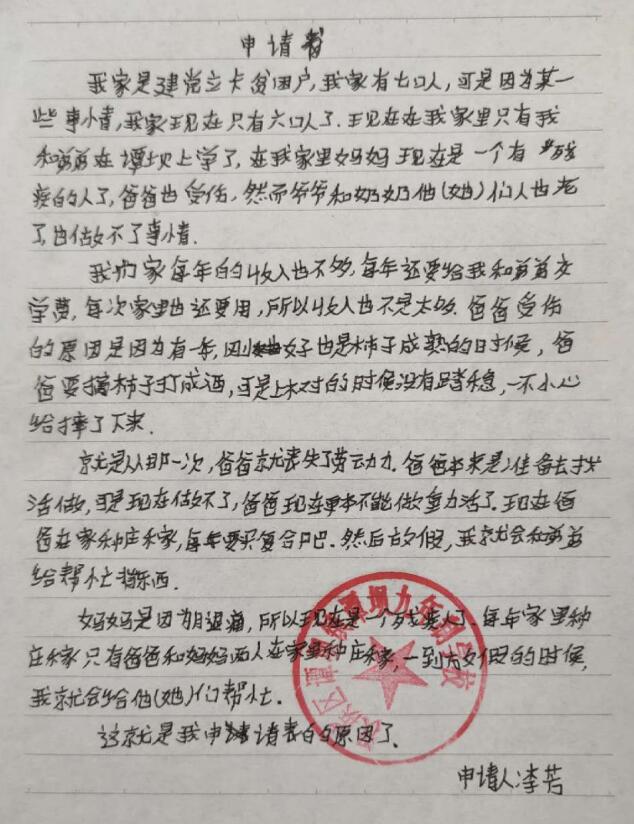 申请书
我家是建党立卡贫困户,我家有七口人,可是因为某一
些事情,我家现在只有六口人了.现在在我家里只有我
和弟弟在谭坝上学了,在我家里妈妈现在是一个有"残
疾的人了,爸爸也受伤.然而爷爷和奶奶他(她)们人也老
了,也做不了事情.
我们家每年的收入也不够,每年还要给我和弟弟交
学费,每次家里也还要用,所以收入也不是太多.爸爸受伤
的原因是因为有一年,刚好也是柿子成熟的日时候,爸
爸要摘柿子打成酒,可是上树的时候没有踏稳,一不小心
给摔了下来.
就是从那一次,爸爸就丧失了劳动力.爸爸本来是准备去找
活做,可是现在做不了,爸爸现在不能做重力活了.现在爸
爸在家种庄稼,每年要买复合肥.然后放假,我就会和弟弟
给帮忙背东西.
妈妈是因为腿痛,所以现在是一个残疾人.每年家里种
庄稼只有爸爸和妈妈两人在家里种庄稼,一到放假的时候,
我就会给他(她)们帮忙.
这就是我申请的原因了.
申请人:李芳
谭坝九年制学校